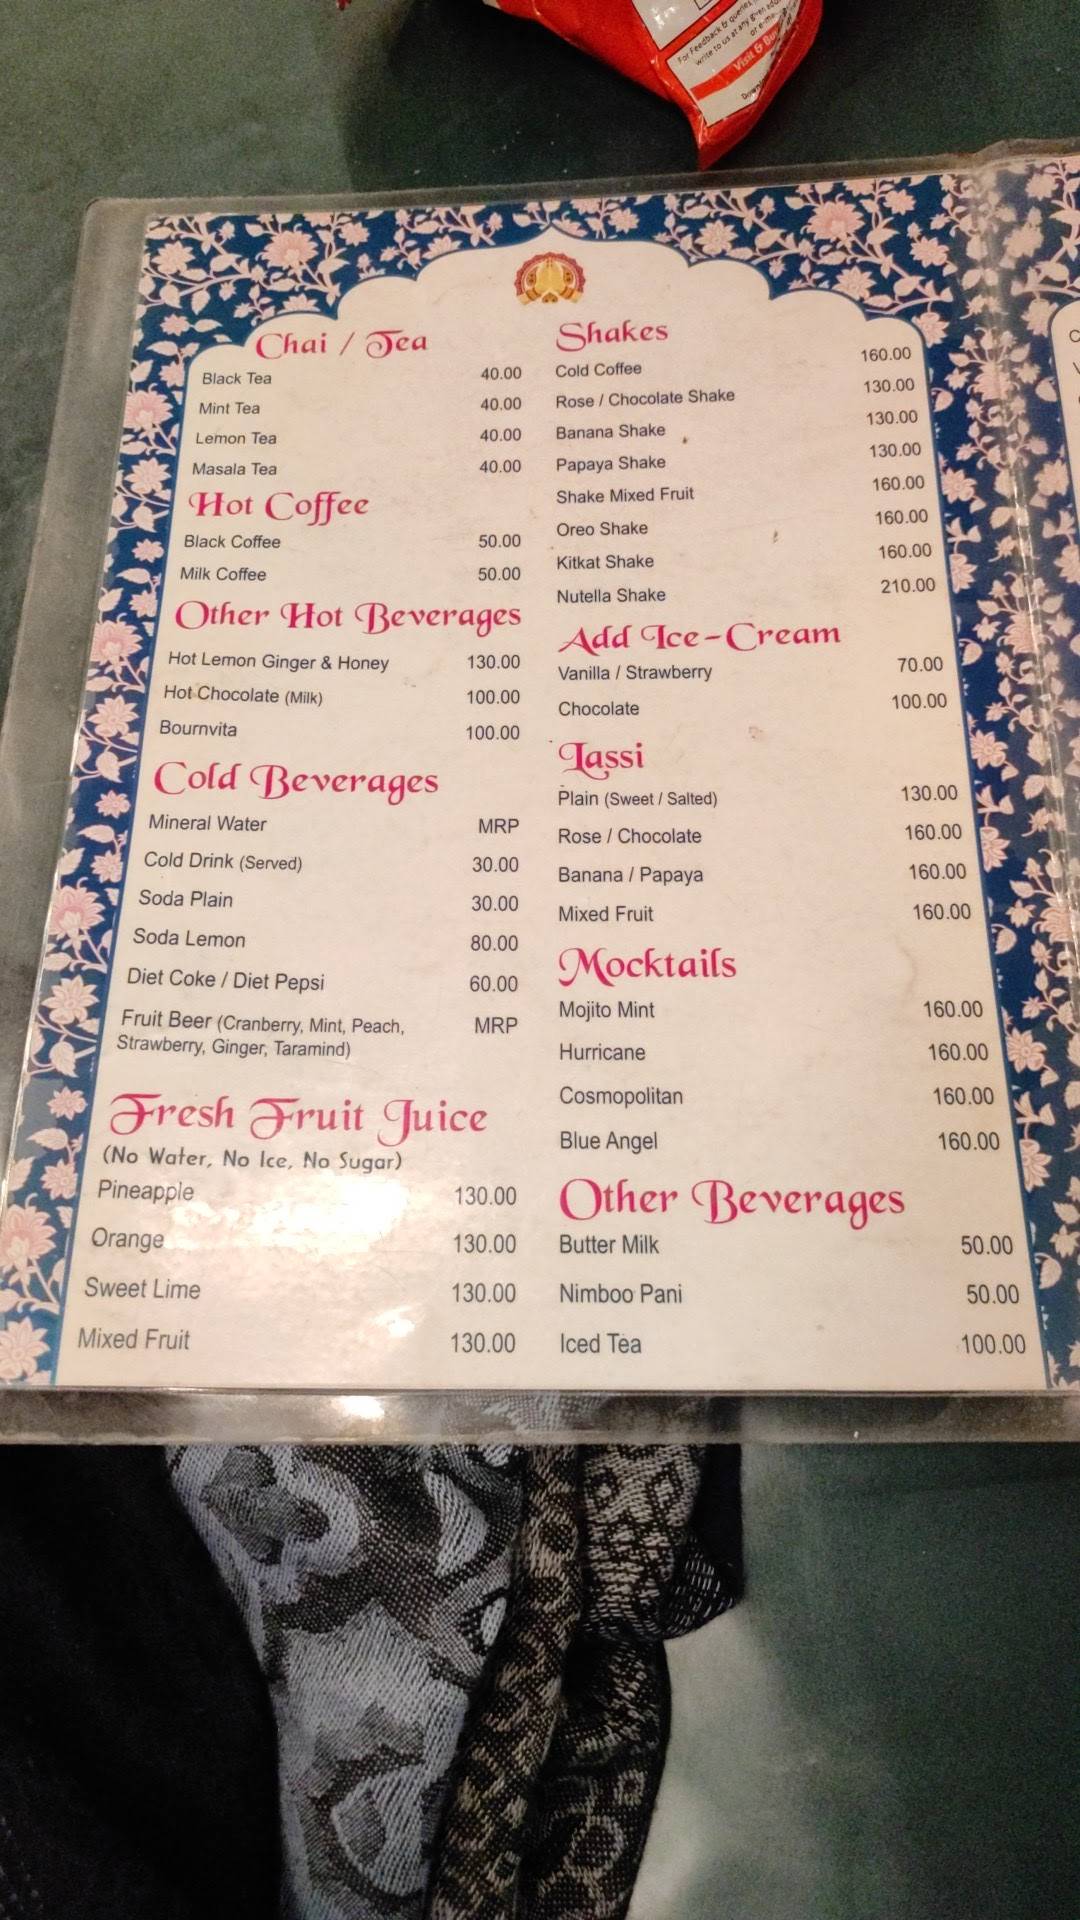 For Feedback & queries
write to us at any given
Visit & Bu
Chai / Tea
Black Tea 40.00
Mint Tea 40.00
Lemon Tea 40.00
Masala Tea 40.00
Hot Coffee
Black Coffee 50.00
Milk Coffee 50.00
Other Hot Beverages
Hot Lemon Ginger & Honey 130.00
Hot Chocolate (Milk) 100.00
Bournvita 100.00
Cold Beverages
Mineral Water MRP
Cold Drink (Served) 30.00
Soda Plain 30.00
Soda Lemon 80.00
Diet Coke / Diet Pepsi 60.00
Fruit Beer (Cranberry, Mint, Peach, MRP
Strawberry, Ginger, Taramind)
Fresh Fruit Juice
(No Water, No Ice, No Sugar)
Pineapple 130.00
Orange 130.00
Sweet Lime 130.00
Mixed Fruit 130.00
Shakes
Cold Coffee 160.00
Rose / Chocolate Shake 130.00
Banana Shake 130.00
Papaya Shake 130.00
Shake Mixed Fruit 160.00
Oreo Shake 160.00
Kitkat Shake 160.00
Nutella Shake 210.00
Add Ice-Cream
Vanilla / Strawberry 70.00
Chocolate 100.00
Lassi
Plain (Sweet / Salted) 130.00
Rose / Chocolate 160.00
Banana / Papaya 160.00
Mixed Fruit 160.00
Mocktails
Mojito Mint 160.00
Hurricane 160.00
Cosmopolitan 160.00
Blue Angel 160.00
Other Beverages
Butter Milk 50.00
Nimboo Pani 50.00
Iced Tea 100.00